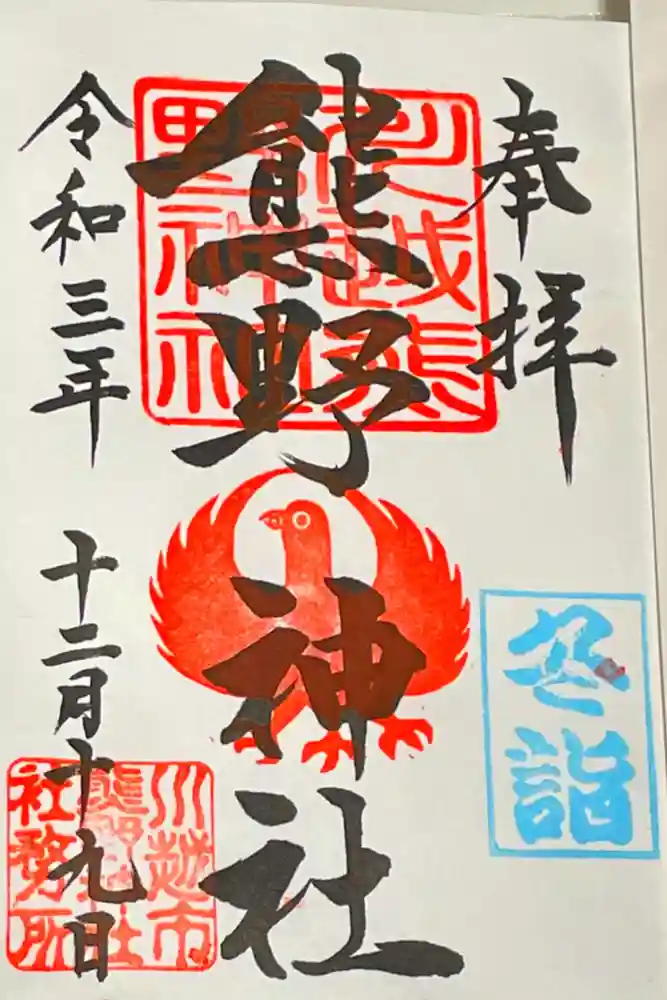 奉拝
川越熊
野神社
熊野神社
令和三年
十二月十九日
詣
川越市
熊野神社
社務所